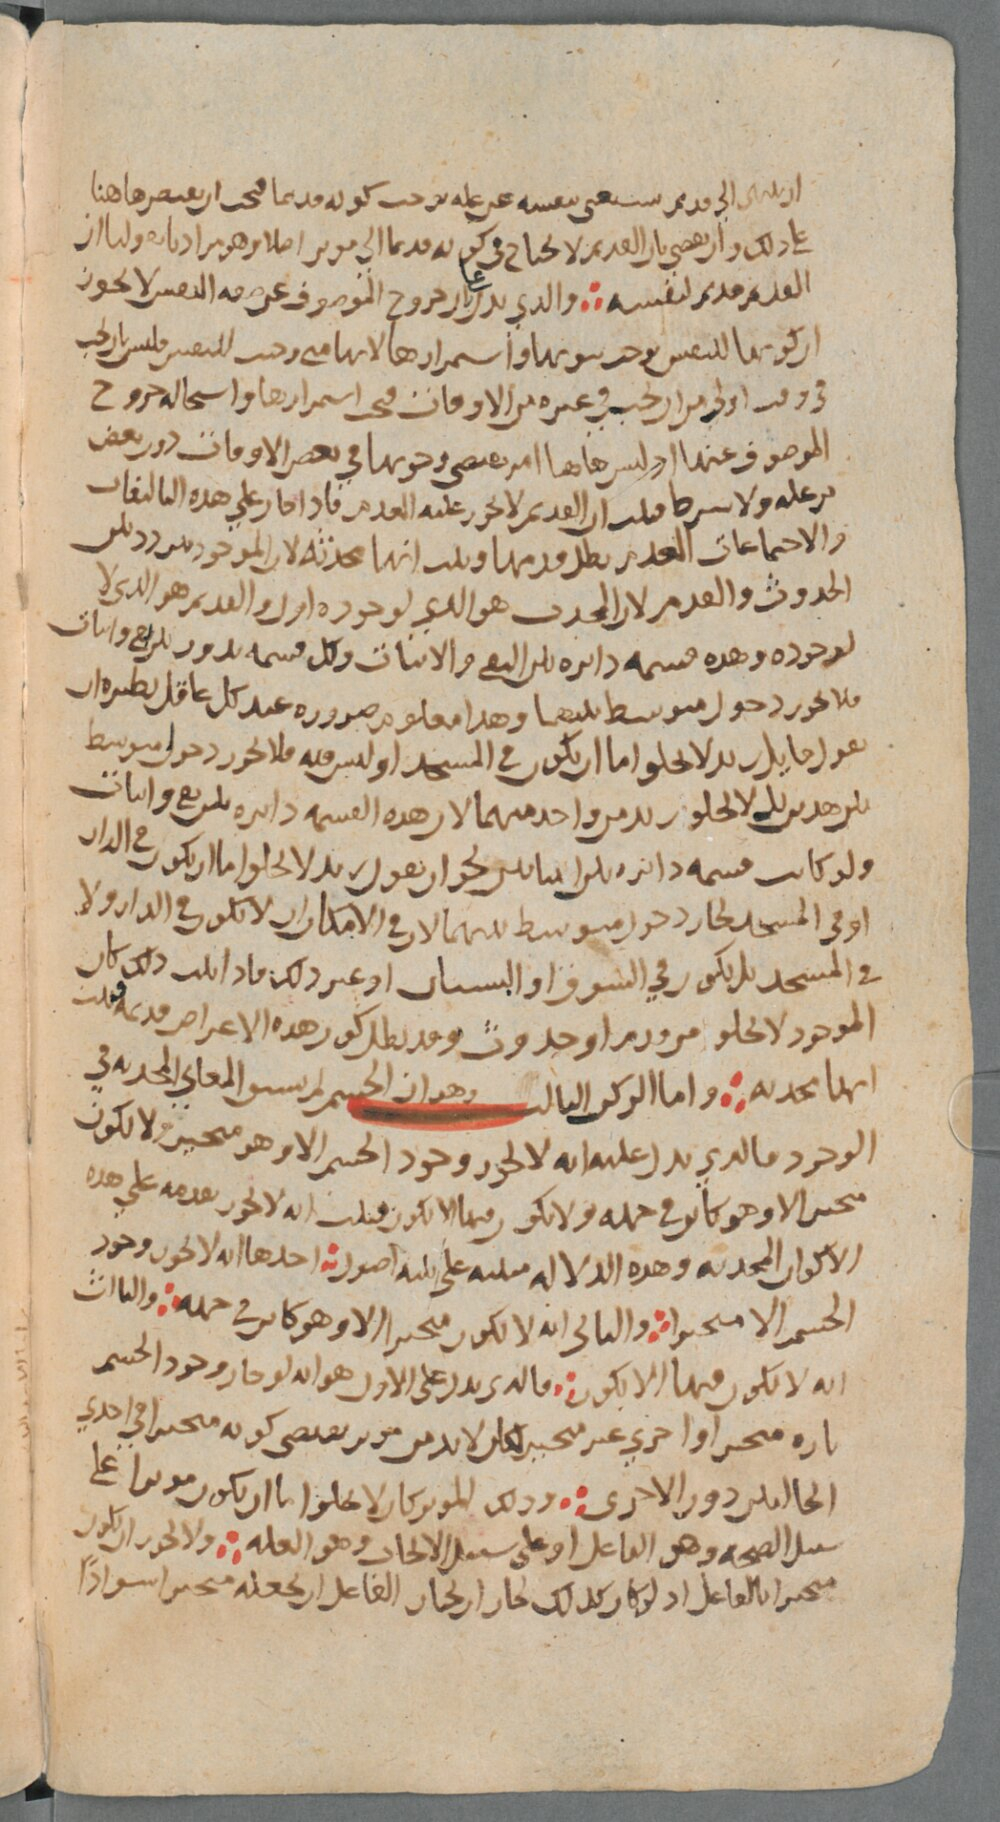 ان ينتهي الى قديم يستغني بنفسه عن علة توجب كونه قديما فيجب ان يقتصر هاهنا
على ذلك وان يقضي بان القديم لا يحتاج في كونه قديما الى موثر اصلا وهو مرادنا بقولنا ان
القديم قديم لنفسه ∴ والذي يدل على ان خروج الموصوف عن صفة النفس لا يجوز
ان كونها للنفس يوجب ثبوتها واستمرارها لانها متى وجبت للنفس فليس بان يجب
في وقت اولى من ان يجب في غيره من الاوقات فيجب استمرارها واستحالة خروج
الموصوف عنها اذ ليس هاهنا امر يقتضي وجوبها في بعض الاوقات دون بعض
من علة ولا شرط فثبت ان القديم لا يجوز عليه العدم فاذا جاز على هذه التاليفات
والاجتماعات العدم بطل قدمها وثبت انها محدثة لان الموجود يتردد بين
الحدوث والقدم لان المحدث هو الذي لوجوده اول والقديم هو الذي لا
لوجوده وهذه قسمة دائرة بين النفي والاثبات وكل قسمة تدور بين نفي واثبات
فلا يجوز دخول متوسط بينهما وهذا معلوم ضرورة عند كل عاقل نظيره ان
يقول قايل زيد لا يخلو اما ان يكون في المسجد او ليس فيه فلا يجوز دخول متوسط
بين هذين بل لا يخلو زيد من واحد منهما لان هذه القسمة دائرة بين نفي واثبات
ولو كانت قسمة دائرة بين اثباتين نحو ان نقول زيد لا يخلو اما ان يكون في الدار
او في المسجد لجاز دخول متوسط بينهما لان في الامكان ان لا يكون في الدار ولا
في المسجد بل يكون في السوق او البستان او غير ذلك فاذا ثبت ذلك كان
الموجود لا يخلو من قدم او حدوث وقد بطل كون هذه الاعراض قديمة فثبت
انها محدثة ∴ واما الركن الثالث وهو ان الجسم لم يسبق المعاني المحدثة في
الوجود فالذي يدل عليه انه لا يجوز وجود الجسم الا وهو متحيز ولا يكون
متحيزا الا وهو كائن في جهة ولا يكون فيها الا بكون فثبت انه لا يجوز تقدمه على هذه
الاكوان المحدثة وهذه الدلالة مبنية على ثلثة اصول ∴ احدها انه لا يجوز وجود
الجسم الا متحيزا ∴ والثاني انه لا يكون متحيزا الا وهو كائن في جهة ∴ والثالث
انه لا يكون فيها الا بكون ∴ فالذي يدل على الاول هو انه لو جاز وجود الجسم
تارة متحيزا واخرى غير متحيز لكان لا بد من موثر يقتضي كونه متحيزا في احدى
الحالتين دون الاخرى ∴ وذلك الموثر كان لا يخلوا اما ان يكون موثرا على
سبيل الصحة وهو الفاعل او على سبيل الايجاب وهو العلة ∴ ولا يجوز ان يكون
متحيزا بالفاعل اذ لو كان كذلك لجاز ان يختار الفاعل ان يجعله متحيزا سوادا